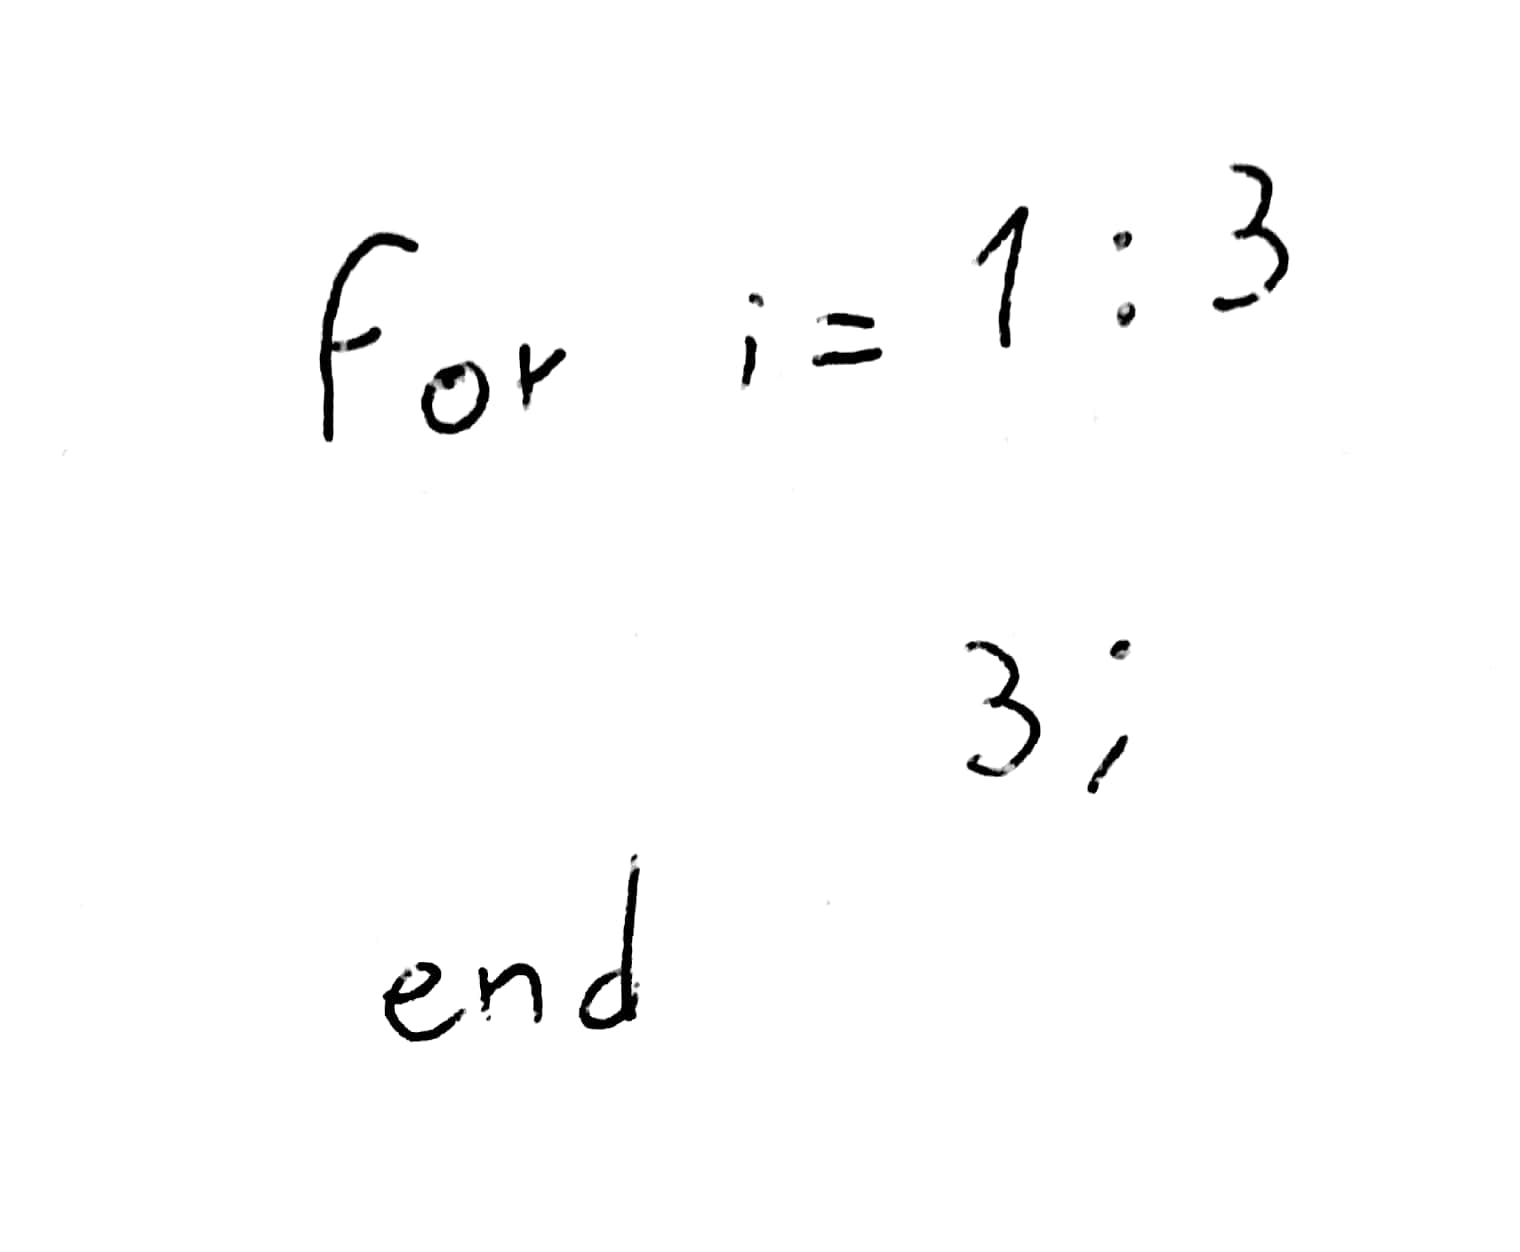 for i=1:3
3;
end